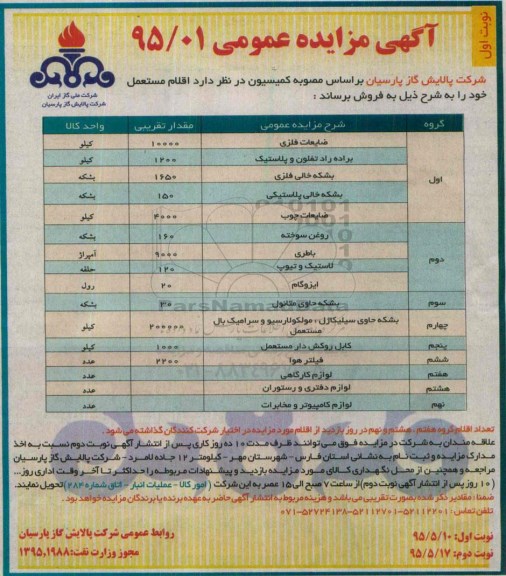 نوبت اول
آگهی مزایده عمومی ۹۵/۰۱
شرکت ملی گاز ایران
شرکت پالایش گاز پارسیان
شرکت پالایش گاز پارسیان براساس مصوبه کمیسیون در نظر دارد اقلام مستعمل
خود را به شرح ذیل به فروش برساند :
گروه شرح مزایده عمومی مقدار تقریبی واحد کالا
اول
ضایعات فلزی ۱۰۰۰۰ کیلو
براده راد تفلون و پلاستیک ۱۲۰۰ کیلو
بشکه خالی فلزی ۱۶۵۰ بشکه
بشکه خالی پلاستیکی ۱۵۰ بشکه
ضایعات چوب ۴۰۰۰ کیلو
دوم
روغن سوخته ۱۶۰ بشکه
باطری ۹۰۰۰ آمپراژ
لاستیک و تیوپ ۱۲۰ حلقه
ایزوگام ۲۰ رول
سوم بشکه حاوی متانول ۳۰ بشکه
چهارم بشکه حاوی سیلیکاژل ، مولکولارسیو و سرامیک بال مستعمل ۲۰۰۰۰۰ کیلو
پنجم کابل روکش دار مستعمل ۱۰۰۰ کیلو
ششم فیلتر هوا ۲۲۰۰ عدد
هفتم لوازم کارگاهی عدد
هشتم لوازم دفتری و رستوران عدد
نهم لوازم کامپیوتر و مخابرات عدد
تعداد اقلام گروه هفتم ، هشتم و نهم در روز بازدید از اقلام مورد مزایده در اختیار شرکت کنندگان گذاشته می شود .
علاقه مندان به شرکت در مزایده فوق می توانند ظرف مدت ۱۰ ده روز کاری پس از انتشار آگهی نوبت دوم نسبت به اخذ
مدارک مزایده و ثبت نام به نشانی استان فارس - شهرستان مهر - کیلومتر ۱۲ جاده لامرد - شرکت پالایش گاز پارسیان
مراجعه و همچنین از محل نگهداری کالای مورد مزایده بازدید و پیشنهادات مربوطه را حداکثر تا آخر وقت اداری روز...
( ۱۰ روز پس از انتشار آگهی نوبت دوم) از ساعت ۷ صبح الی ۱۵ عصر به این شرکت ( امور کالا - عملیات انبار - اتاق شماره ۲۸۴) تحویل نمایند.
ضمنا : مقادیر ذکر شده بصورت تقریبی می باشد و هزینه مربوط به انتشار آگهی حاضر به عهده برنده یا برندگان مزایده خواهد بود .
تلفن تماس : ۵۲۱۱۲۲۰۱-۵۲۱۱۲۷۰۱-۵۲۷۲۴۱۳۸-۰۷۱
نوبت اول: ۹۵/۵/۱۰
نوبت دوم: ۹۵/۵/۱۷
روابط عمومی شرکت پالایش گاز پارسیان
مجوز وزارت نفت: ۱۳۹۵,۱۹۸۸
ParsNamadData